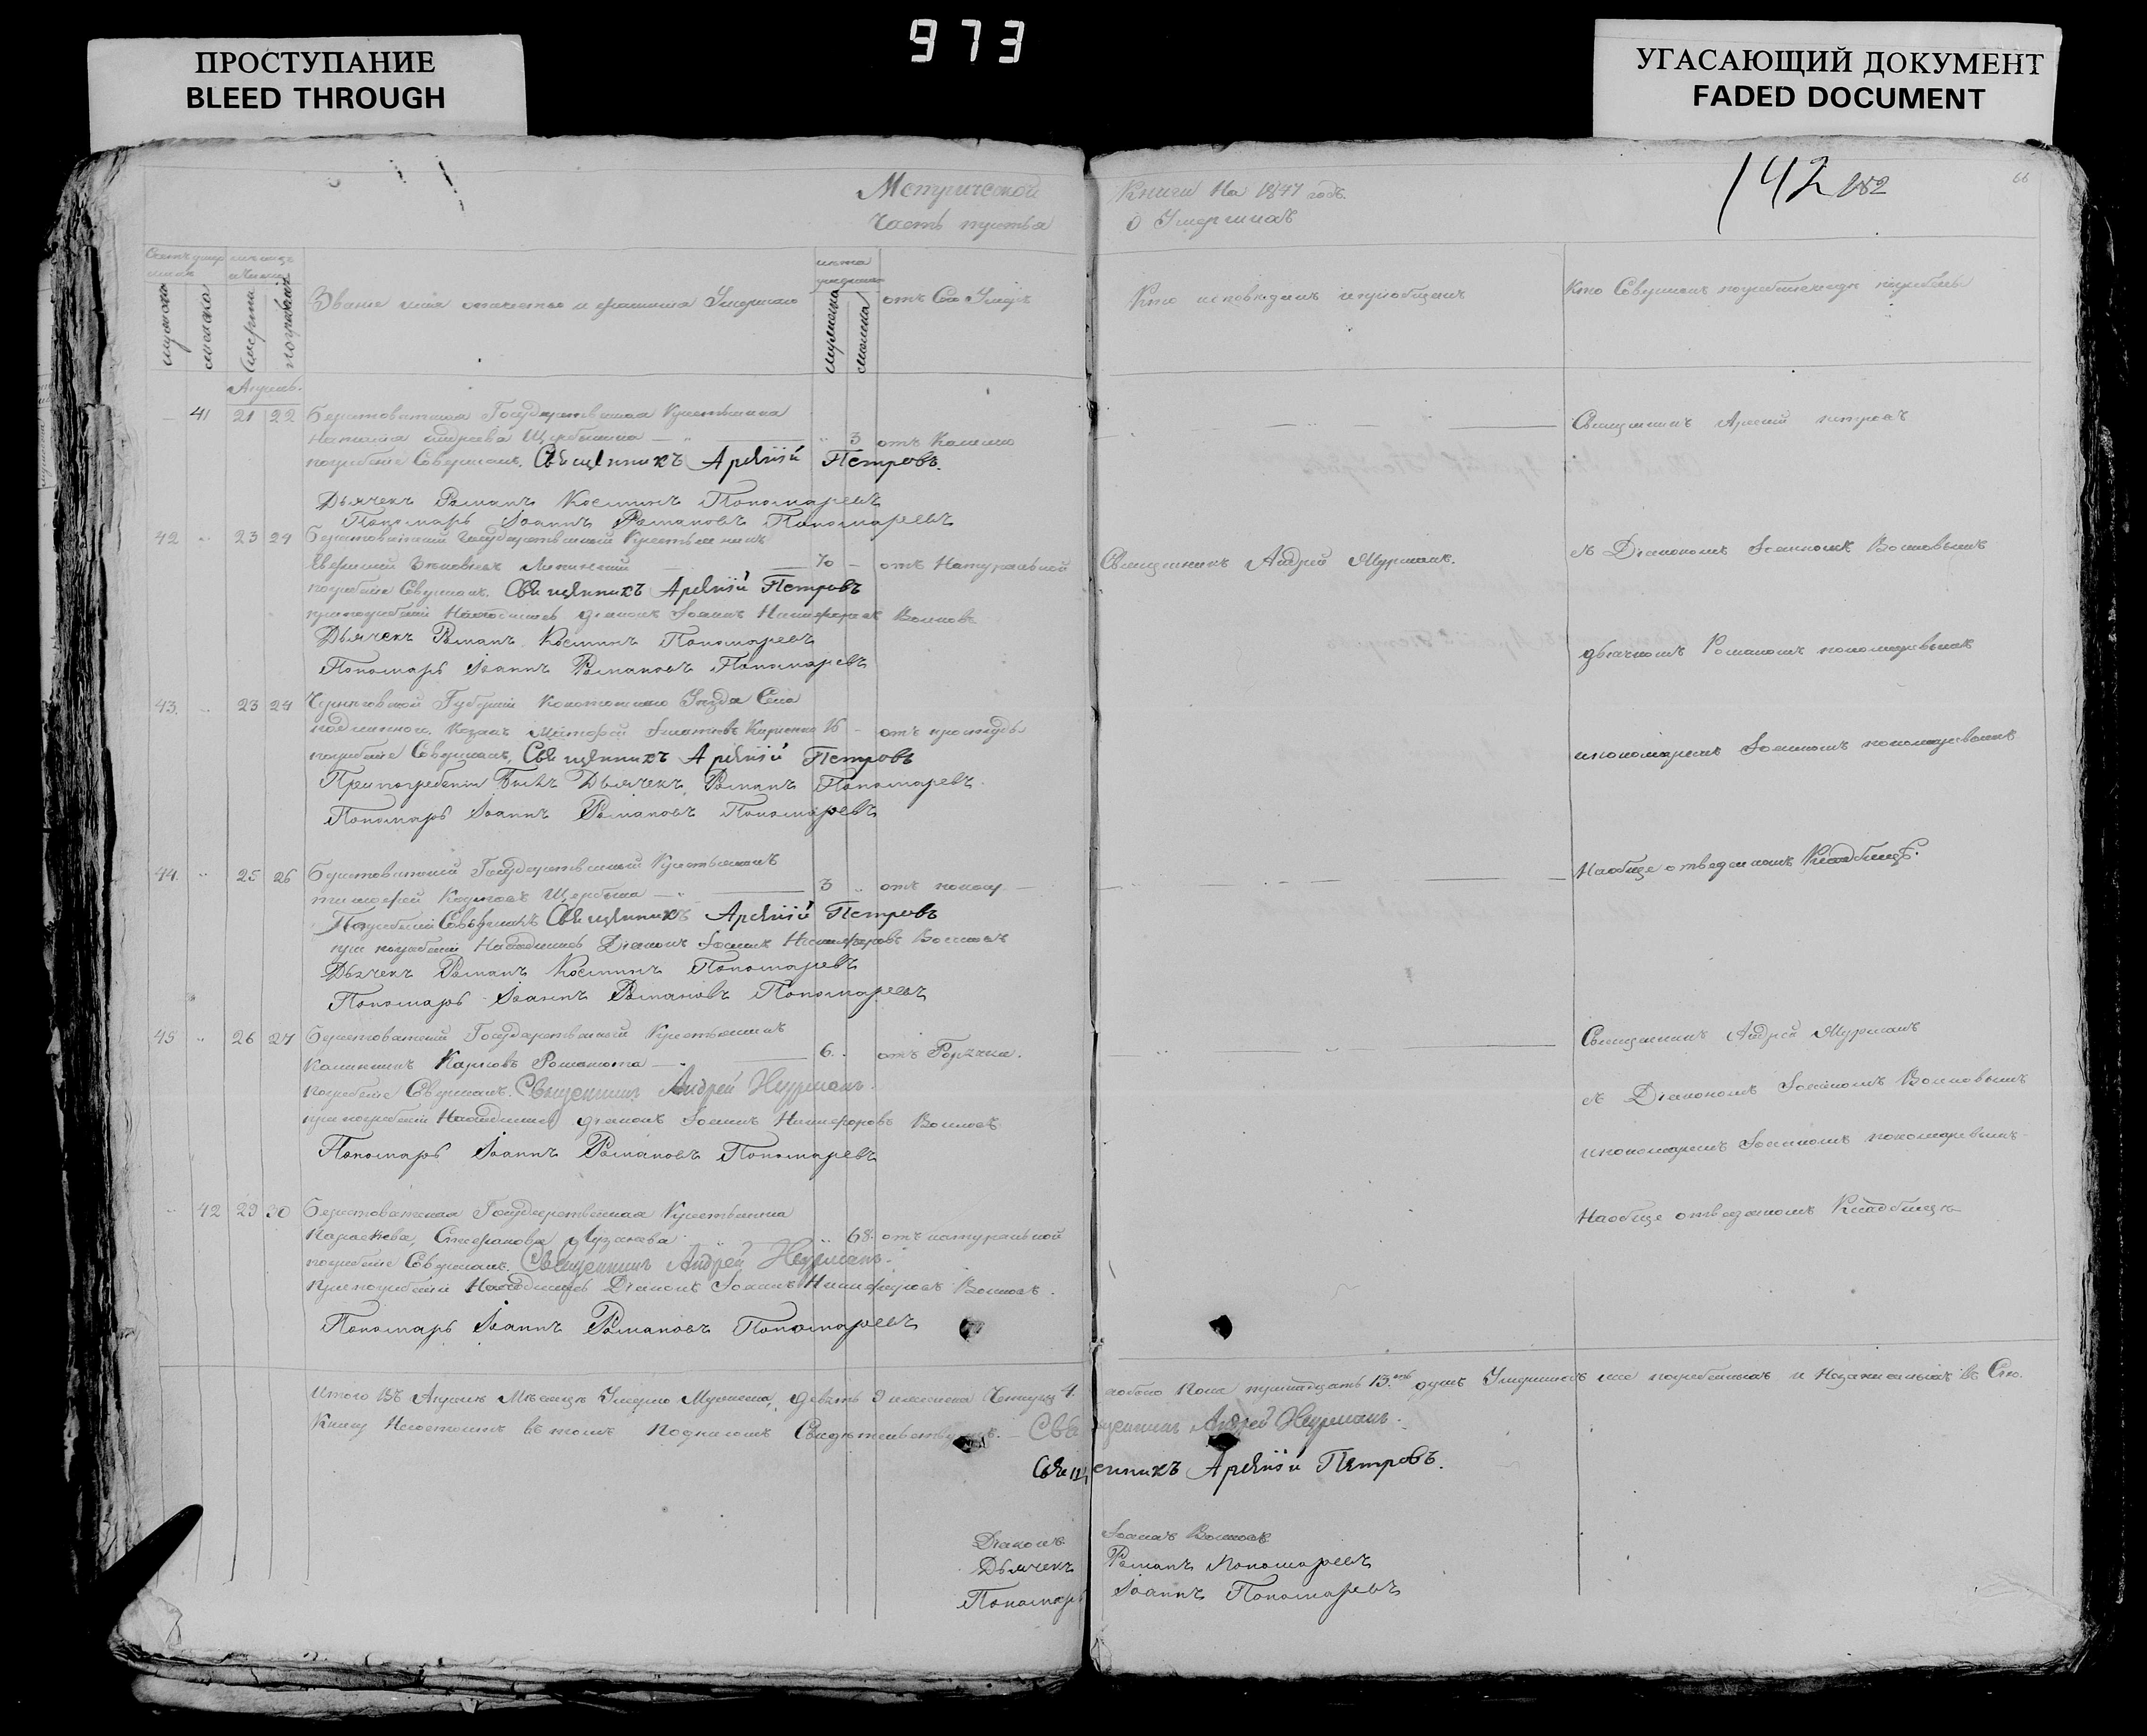 973
ПРОСТУПАНИЕ
BLEED THROUGH
УГАСАЮЩИЙ ДОКУМЕНТ
FADED DOCUMENT
142 182
66
Метрической Книги На 1847 годъ.
Часть третья о Умершихъ
мужеска женска
Смерти погребенія
Званіе имя отчество и фамилія Умершаго
мужеска женска
отъ Чего Умеръ
Кто исповѣдалъ и пріобщалъ
Кто Совершалъ погребеніе и где погребены
Апрель.
41 21 22 Берестоватская Государственная Крестьянка
Наталія Андреева Щербинина 3 отъ Кашлю
Священникъ Арсеній петровъ
погребеніе Совершалъ. Священникъ Арсеній Петровъ.
Дьячекъ Романъ Костинъ Пономаревъ
Пономарь Іоаннъ Романовъ Пономаревъ
42 23 24 Берестоватскій Государственный Крестьянинъ
70 отъ Натуральной Священникъ Андрей
съ Діакономъ Іоанномъ Волковымъ
погребеніе Совершалъ. Священникъ Арсеній Петровъ
при погребеніи Находились діаконъ Іоаннъ Никифоровъ Волковъ
Дьячекъ Романъ Костинъ Пономаревъ
дьячкомъ Романомъ пономаревымъ
Пономарь Іоаннъ Романовъ Пономаревъ
43. 23 24 Черниговской Губерніи Конотопскаго Уезда Села
Козакъ 16 отъ простуды
и пономаремъ Іоанномъ пономаревымъ
погребеніе Совершалъ, Священникъ Арсеній Петровъ
При погребеніи Былъ Дьячекъ, Романъ Пономаревъ.
Пономарь Іоаннъ Романовъ Пономаревъ
44. 25 26 Берестоватскій Государственный Крестьянинъ
тимофей Щербина 3 отъ поносу
На обще отведенномъ Кладбищѣ.
Погребеніе Совершалъ Священникъ Арсеній Петровъ
при погребеніи Находились Діаконъ Іоаннъ Никифоровъ Волковъ
Дьячекъ Романъ Костинъ Пономаревъ
Пономарь Іоаннъ Романовъ Пономаревъ
45 26 27 Берестоватскій Государственный Крестьянинъ
Карповъ 6. отъ Горячки.
Священникъ Андрей
погребеніе Совершалъ. Священникъ Андрей
съ Діакономъ Іоанномъ Волковымъ
при погребеніи Находились діаконъ Іоаннъ Никифоровъ Волковъ
Пономарь Іоаннъ Романовъ Пономаревъ
и пономаремъ Іоанномъ пономаревымъ
42 29 30 Берестоватская Государственная Крестьянка
На обще отведенномъ Кладбищѣ
Параскева, Стефанова 68. отъ натуральной
погребеніе Совершалъ. Священникъ Андрей
При погребеніи Находились Діаконъ Іоаннъ Никифоровъ Волковъ.
Пономарь Іоаннъ Романовъ Пономаревъ
Итого Въ Апрелѣ Мѣсяцѣ Умерло Мужеска, девять 9 женска Четыри 4. обоего Пола тринадцать 13. душъ Умершихъ не погребенныхъ и Незаписанныхъ въ Сію.
Книгу Несостоитъ въ томъ Подписомъ Свидѣтельствуемъ. Священникъ Андрей
Священникъ Арсеній Петровъ.
Діаконъ Іоаннъ Волковъ
Дьячекъ Романъ Пономаревъ
Пономарь Іоаннъ Пономаревъ